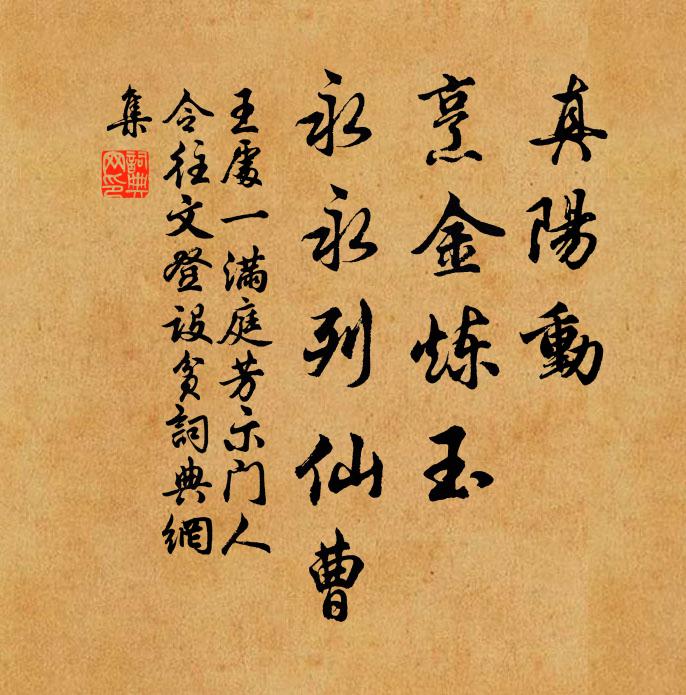 真陽動
烹金炼玉
永永列仙曹
王處一滿庭芳示门人
令往文登設貧詞典網
集
詞典
网印